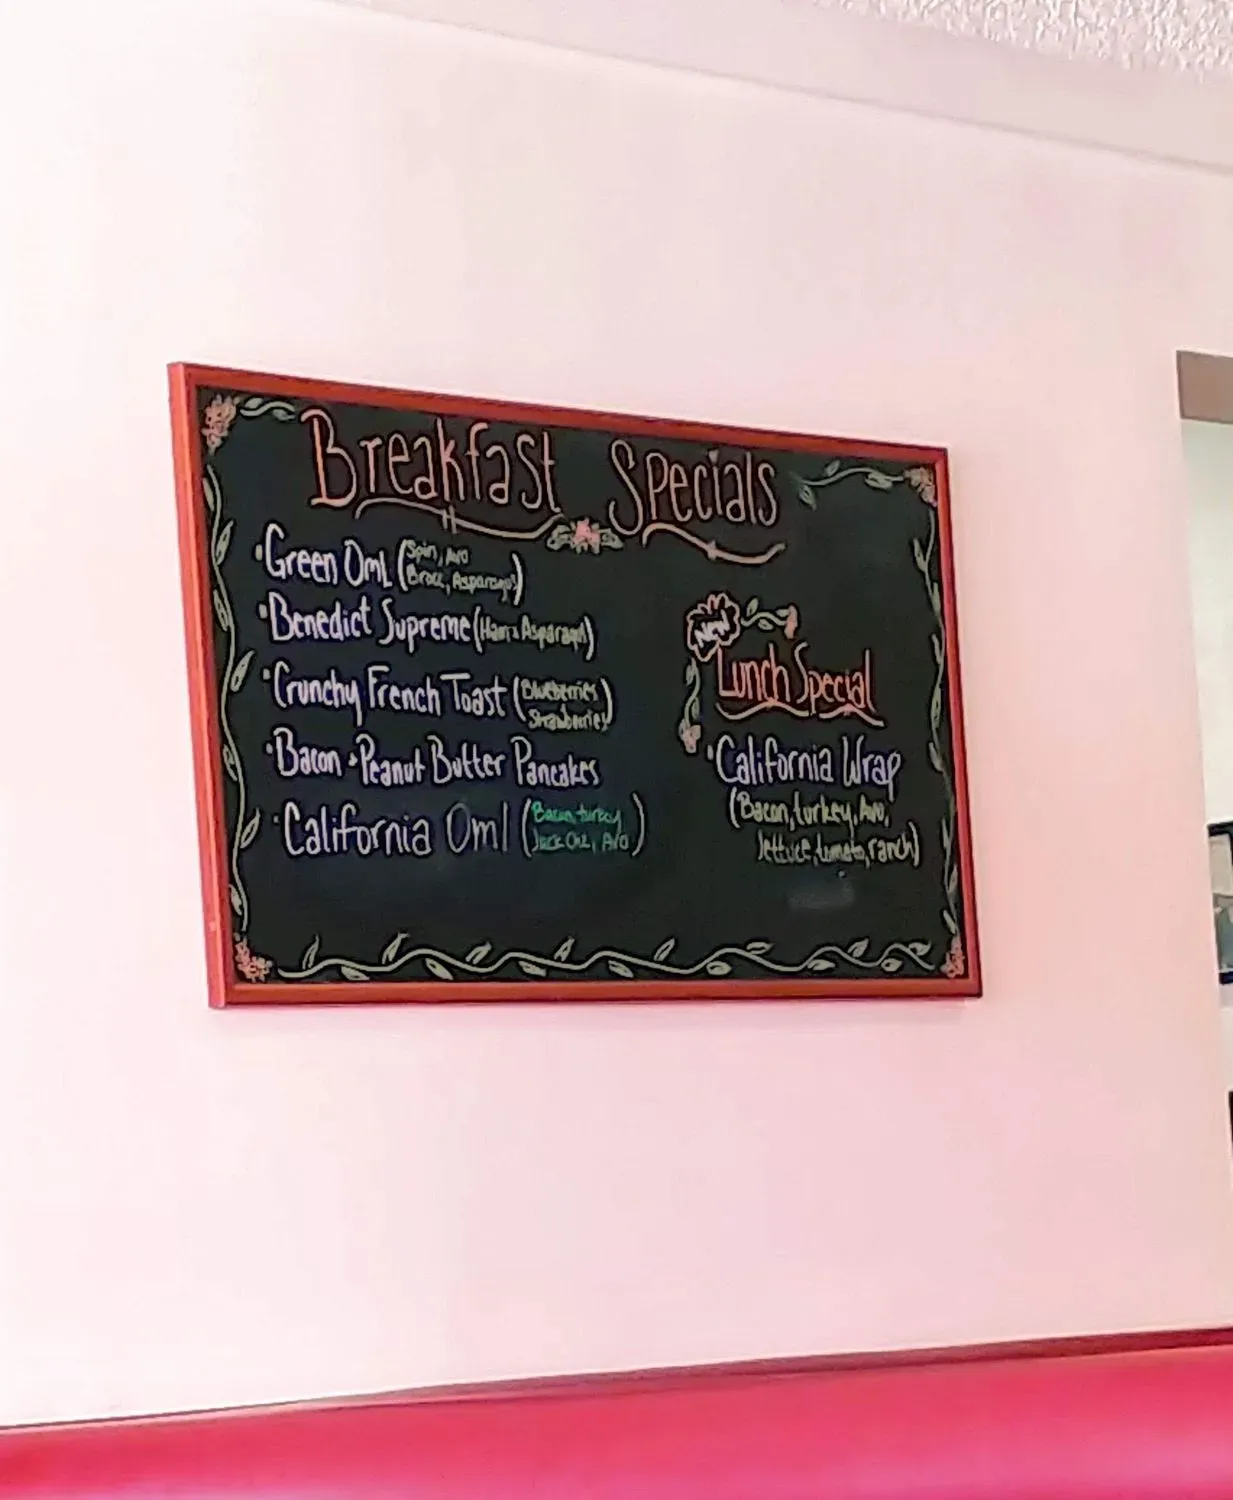 Breakfast Specials
• Green Oml (Spin, Avo
Brocc, Asparagus)
• Benedict Supreme (Ham + Asparagus)
• Crunchy French Toast (Blueberries
Strawberries)
• Bacon + Peanut Butter Pancakes
• California Oml (Bacon, turkey
Jack Che, Avo)
NEW
Lunch Special
• California Wrap
(Bacon, turkey, Avo,
lettuce, tomato, ranch)